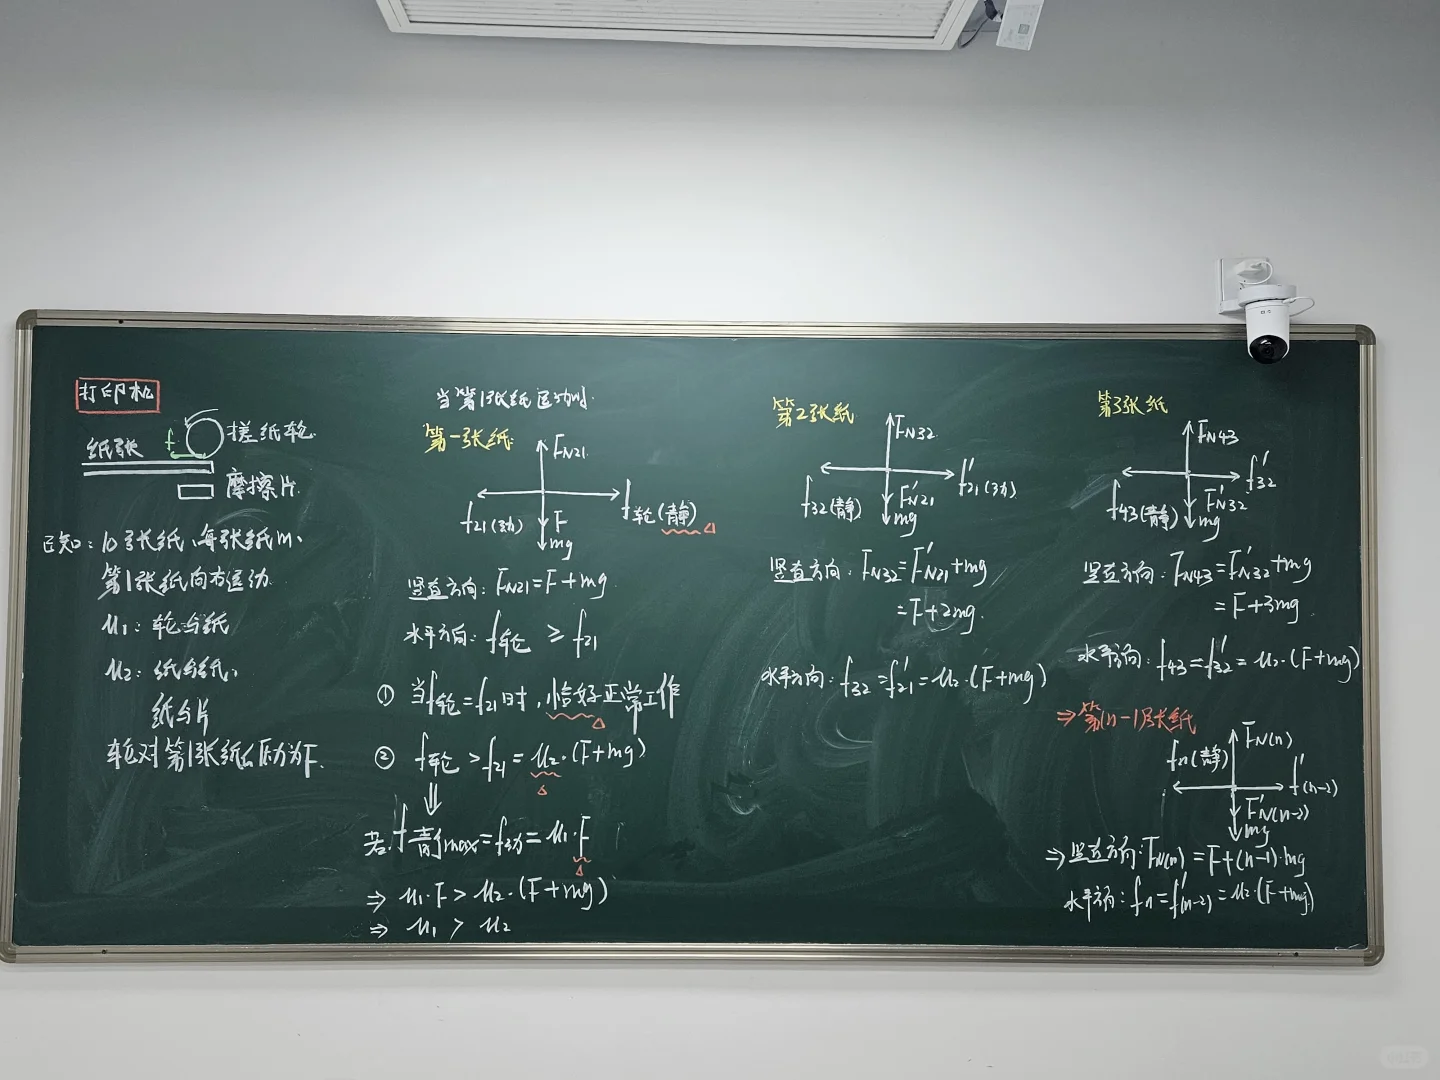 打印机
搓纸轮
f
纸张
摩擦片
已知：10张纸，每张纸m、
第1张纸向右运动.
μ₁：轮与纸
μ₂：纸与纸，
纸与片
轮对第1张纸的压力为F.
当第1张纸运动时.
第一张纸:
F_N21
f_21(动)
f_轮(静) △
F
mg
竖直方向：F_N21=F+mg
水平方向：f_轮 ≥ f_21
① 当f_轮=f_21时，恰好正常工作
△
② f_轮 > f_21 = μ₂·(F+mg)
△
⇓
若 f_静max=f_动=μ₁·F
△
⇒ μ₁·F > μ₂·(F+mg)
⇒ μ₁ > μ₂
第2张纸
F_N32
f_32(静)
f'_21(动)
F'_N21
mg
竖直方向：F_N32=F'_N21+mg
=F+2mg.
水平方向：f_32=f'_21=μ₂·(F+mg)
第3张纸
F_N43
f_43(静)
f'_32
F'_N32
mg
竖直方向：F_N43=F'_N32+mg
=F+3mg
水平方向：f_43=f'_32=μ₂·(F+mg)
⇒第(n-1)张纸
F_N(n)
f_n(静)
f'_(n-2)
F'_N(n-2)
mg
⇒竖直方向：F_N(n)=F+(n-1)·mg
水平方向：f_n=f'_(n-2)=μ₂·(F+mg)